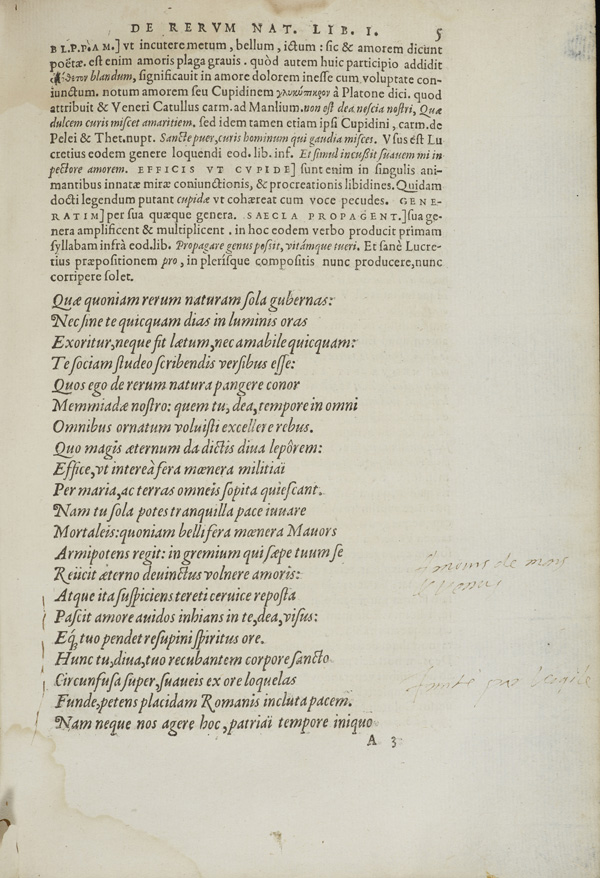 DE RERVM NAT. LIB. I. 5
BL.P.P.AM.] vt incutere metum, bellum, ictum: sic & amorem dicunt
poëtæ. est enim amoris plaga grauis. quòd autem huic participio addidit
blandum, significauit in amore dolorem inesse cum voluptate con-
iunctum. notum amorem seu Cupidinem γλυκύπικρον à Platone dici. quod
attribuit & Veneri Catullus carm. ad Manlium. non est dea nescia nostri, Quæ
dulcem curis miscet amaritiem. sed idem tamen etiam ipsi Cupidini, carm. de
Pelei & Thet. nupt. Sancte puer, curis hominum qui gaudia misces. Vsus est Lu
cretius eodem genere loquendi eod. lib. inf. Et simul incußit suauem mi in
pectore amorem. EFFICIS VT CVPIDE] sunt enim in singulis ani-
mantibus innatæ miræ coniunctionis, & procreationis libidines. Quidam
docti legendum putant cupidæ vt cohæreat cum voce pecudes. GENE-
RATIM] per sua quæque genera. SAECLA PROPAGENT.] sua ge-
nera amplificent & multiplicent. in hoc eodem verbo producit primam
syllabam infrà eod. lib. Propagare genus possit, vitámque tueri. Et sanè Lucre-
tius præpositionem pro, in plerísque compositis nunc producere, nunc
corripere solet.
Quæ quoniam rerum naturam sola gubernas:
Nec sine te quicquam dias in luminis oras
Exoritur, neque fit lætum, nec amabile quicquam:
Te sociam studeo scribendis versibus esse:
Quos ego de rerum natura pangere conor
Memmiadæ nostro: quem tu, dea, tempore in omni
Omnibus ornatum voluisti excellere rebus.
Quo magis æternum da dictis diua lepôrem:
Effice, vt intereà fera mœnera militiaï
Per maria, ac terras omneis sopita quiescant.
Nam tu sola potes tranquilla pace iuuare
Mortaleis: quoniam bellifera mœnera Mauors
Armipotens regit: in gremium qui sæpe tuum se
Reiicit æterno deuinctus volnere amoris:
Atque ita suspiciens tereti ceruice reposta
Pascit amore auidos inhians in te, dea, visus:
Eq́; tuo pendet resupini spiritus ore.
Hunc tu, diua, tuo recubantem corpore sancto
Circunfusa super, suaueis ex ore loquelas
Funde, petens placidam Romanis incluta pacem.
Nam neque nos agere hoc, patriaï tempore iniquo
A 3
de mars
par